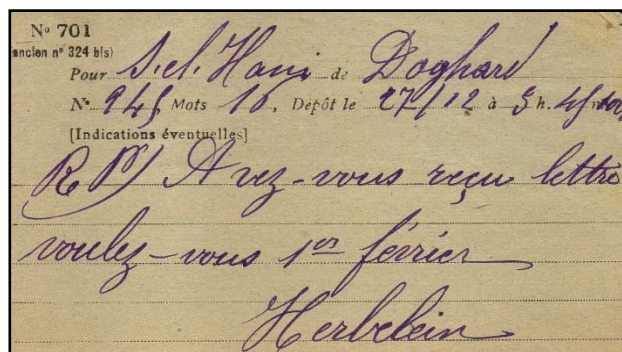 Nº 701
ancien nº 324 bis)
Pour S.el. Hani de Doghard
Nº 945 Mots 10, Dépôt le 27/12 à 5 h. 45
[Indications éventuelles]
RP) Avez-vous reçu lettre
voulez-vous 1er février
Herbelein